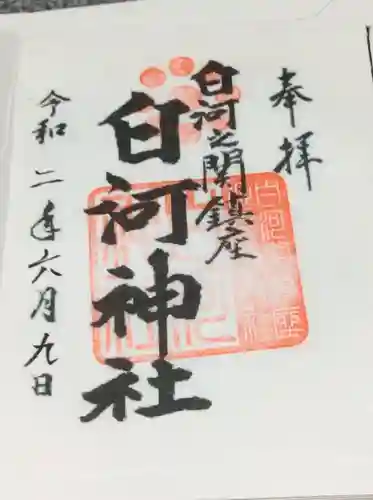 奉拝
白河之関鎮座
白河神社
令和二年六月九日